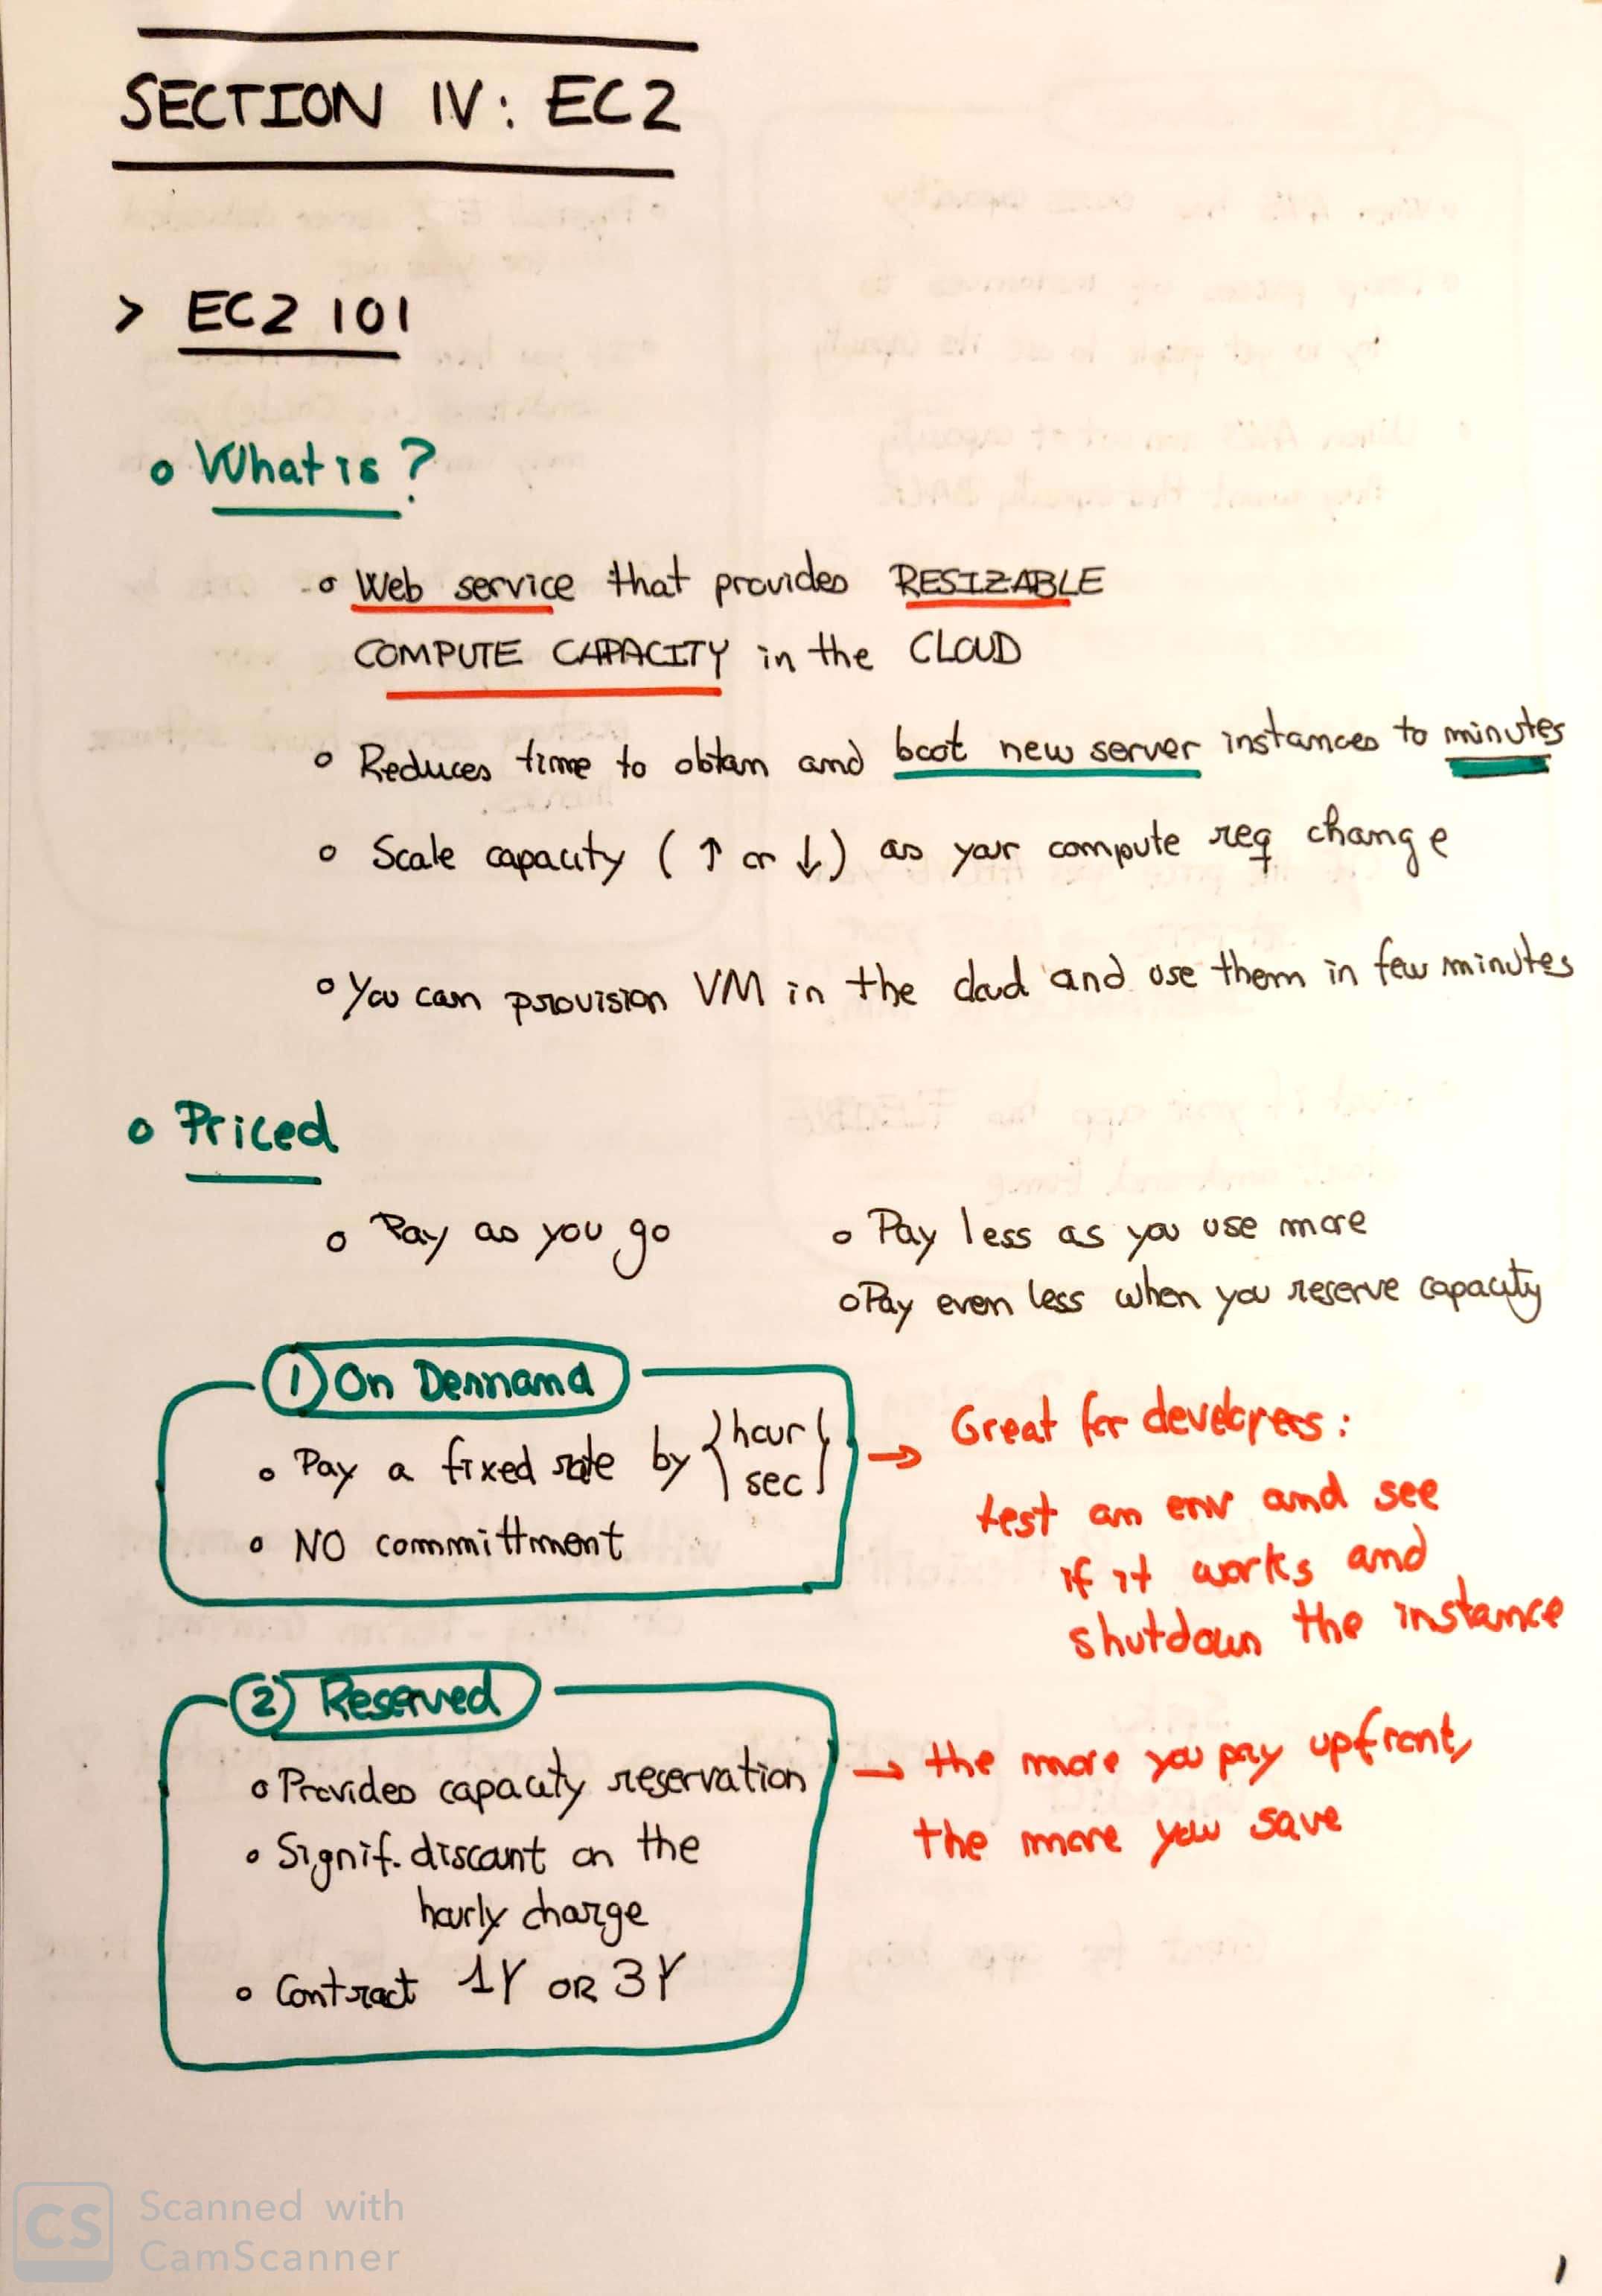 SECTION IV: EC2
> EC2 101
o What is?
o Web service that provides RESIZABLE
COMPUTE CAPACITY in the CLOUD
o Reduces time to obtain and boot new server instances to minutes
o Scale capacity (↑ or ↓) as your compute req change
o You can provision VM in the cloud and use them in few minutes
o Priced
o Pay as you go
o Pay less as you use more
o Pay even less when you reserve capacity
1 On Demmand
o Pay a fixed rate by {hour
sec}
o NO committment
→ Great for developers:
test an env and see
if it works and
shutdown the instance
2 Reserved
o Provides capacity reservation
o Signif. discount on the
hourly charge
o Contract 1Y OR 3Y
→ the more you pay upfront,
the more you save
CS Scanned with
CamScanner
1